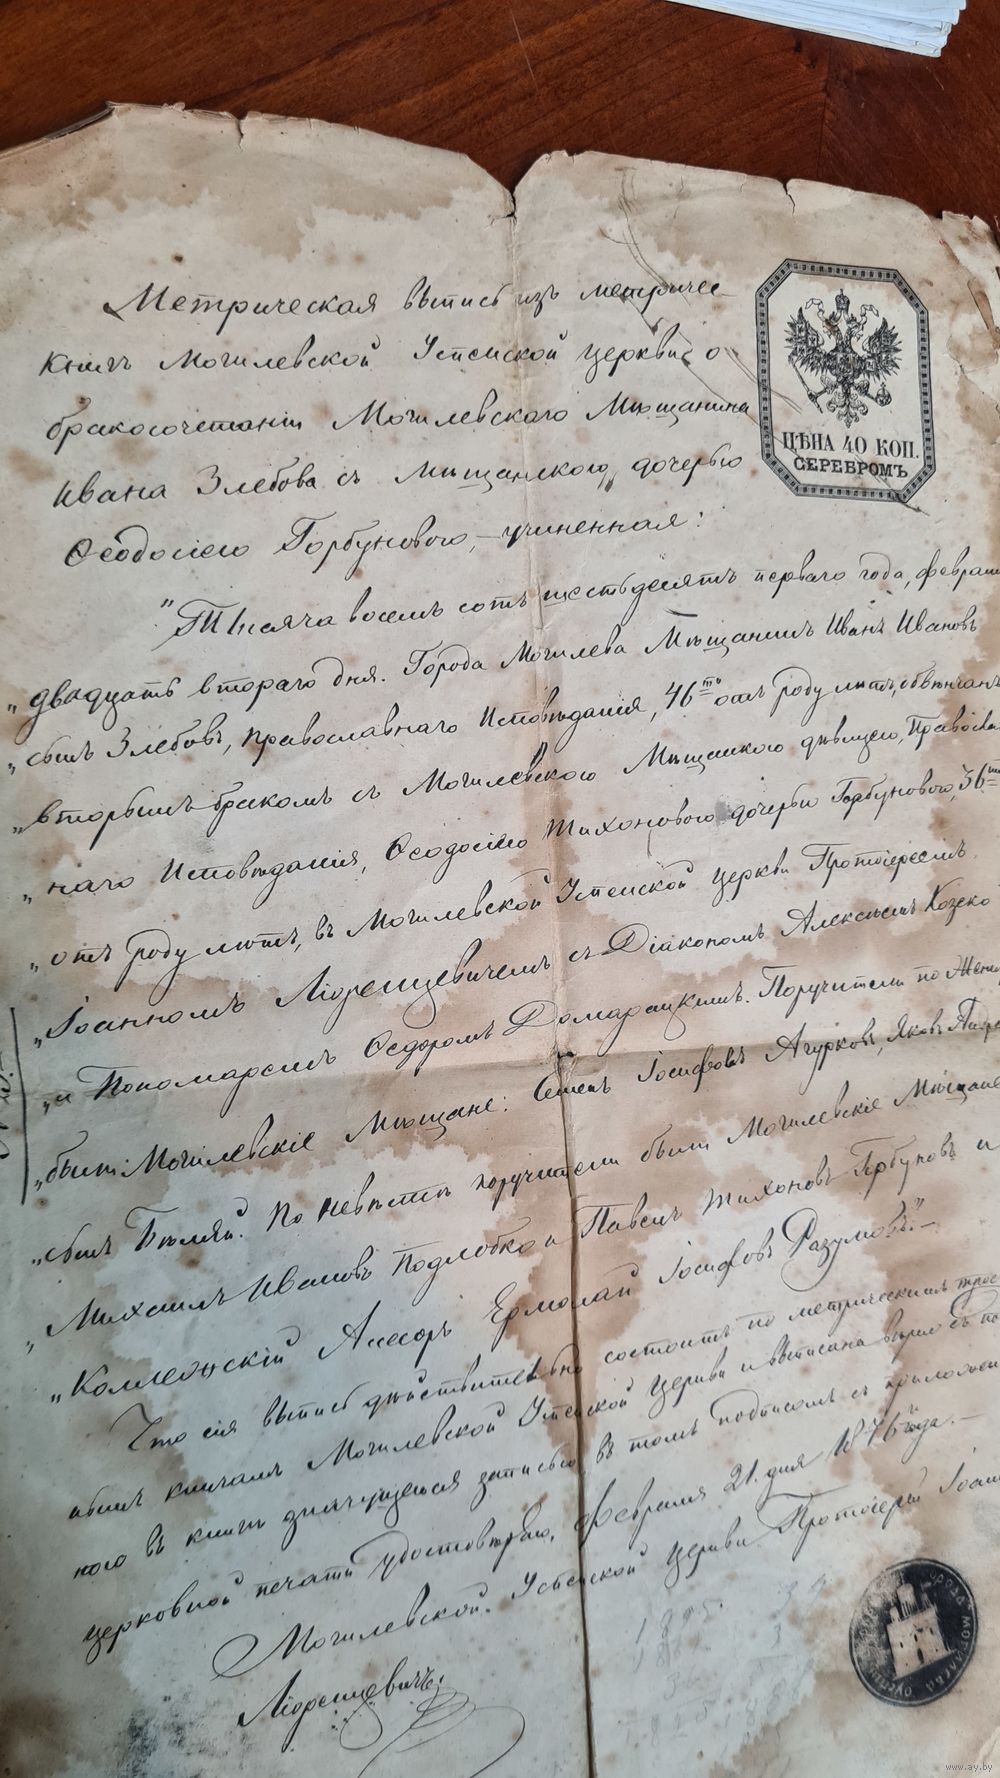 Метрическая выпись изъ метричес-
книгъ Могилевской Успенской церкви о
бракосочетаніи Могилевскаго Мѣщанина
Ивана Злебова съ Мѣщанскою дочерью
Ѳеодосіею Горбуновою, учиненная:
ЦѢНА 40 КОП.
СЕРЕБРОМЪ
"Тысяча восемь сотъ шестьдесятъ перваго года, февраля
„двадцать втораго дня. Города Могилева Мѣщанинъ Иванъ Ивановъ
„сынъ Злебовъ, Православнаго Исповѣданія, 46ти отъ роду лѣтъ, обвѣнчанъ
„вторымъ бракомъ съ Могилевскою Мѣщанкою дѣвицею, Православ
„наго Исповѣданія, Ѳеодосіею Тихоновою дочерью Горбуновою, 36ти
„отъ роду лѣтъ, въ Могилевской Успенской церкви Протоіереемъ
„Іоанномъ съ Діакономъ Алексѣемъ
„и Пономаремъ Ѳедоромъ Домарацкимъ. Поручители по Жени
„были: Могилевскіе Мѣщане: Семенъ Іосифовъ Агурковъ, Яковъ
„сынъ Бѣляй. По невѣстѣ поручители были Могилевскіе Мѣщане
„Михаилъ Ивановъ и Павелъ Тихоновъ Горбуновъ и
„Коллежскій Асесоръ Ермолай Іосифовъ Разумовъ."—
Что сія выпись дѣйствительно состоитъ по метрическимъ
книгамъ Могилевской Успенской Церкви и выписана вѣрно съ
ного въ книгѣ значущеюся записью, въ томъ подписомъ съ приложені
церковной печати удостовѣряю. Февраля 21 дня 1876 года.—
Могилевской Успенской церкви Протоіерей Іоан
ГОРОДА МОГИЛЕВА
www.ay.by